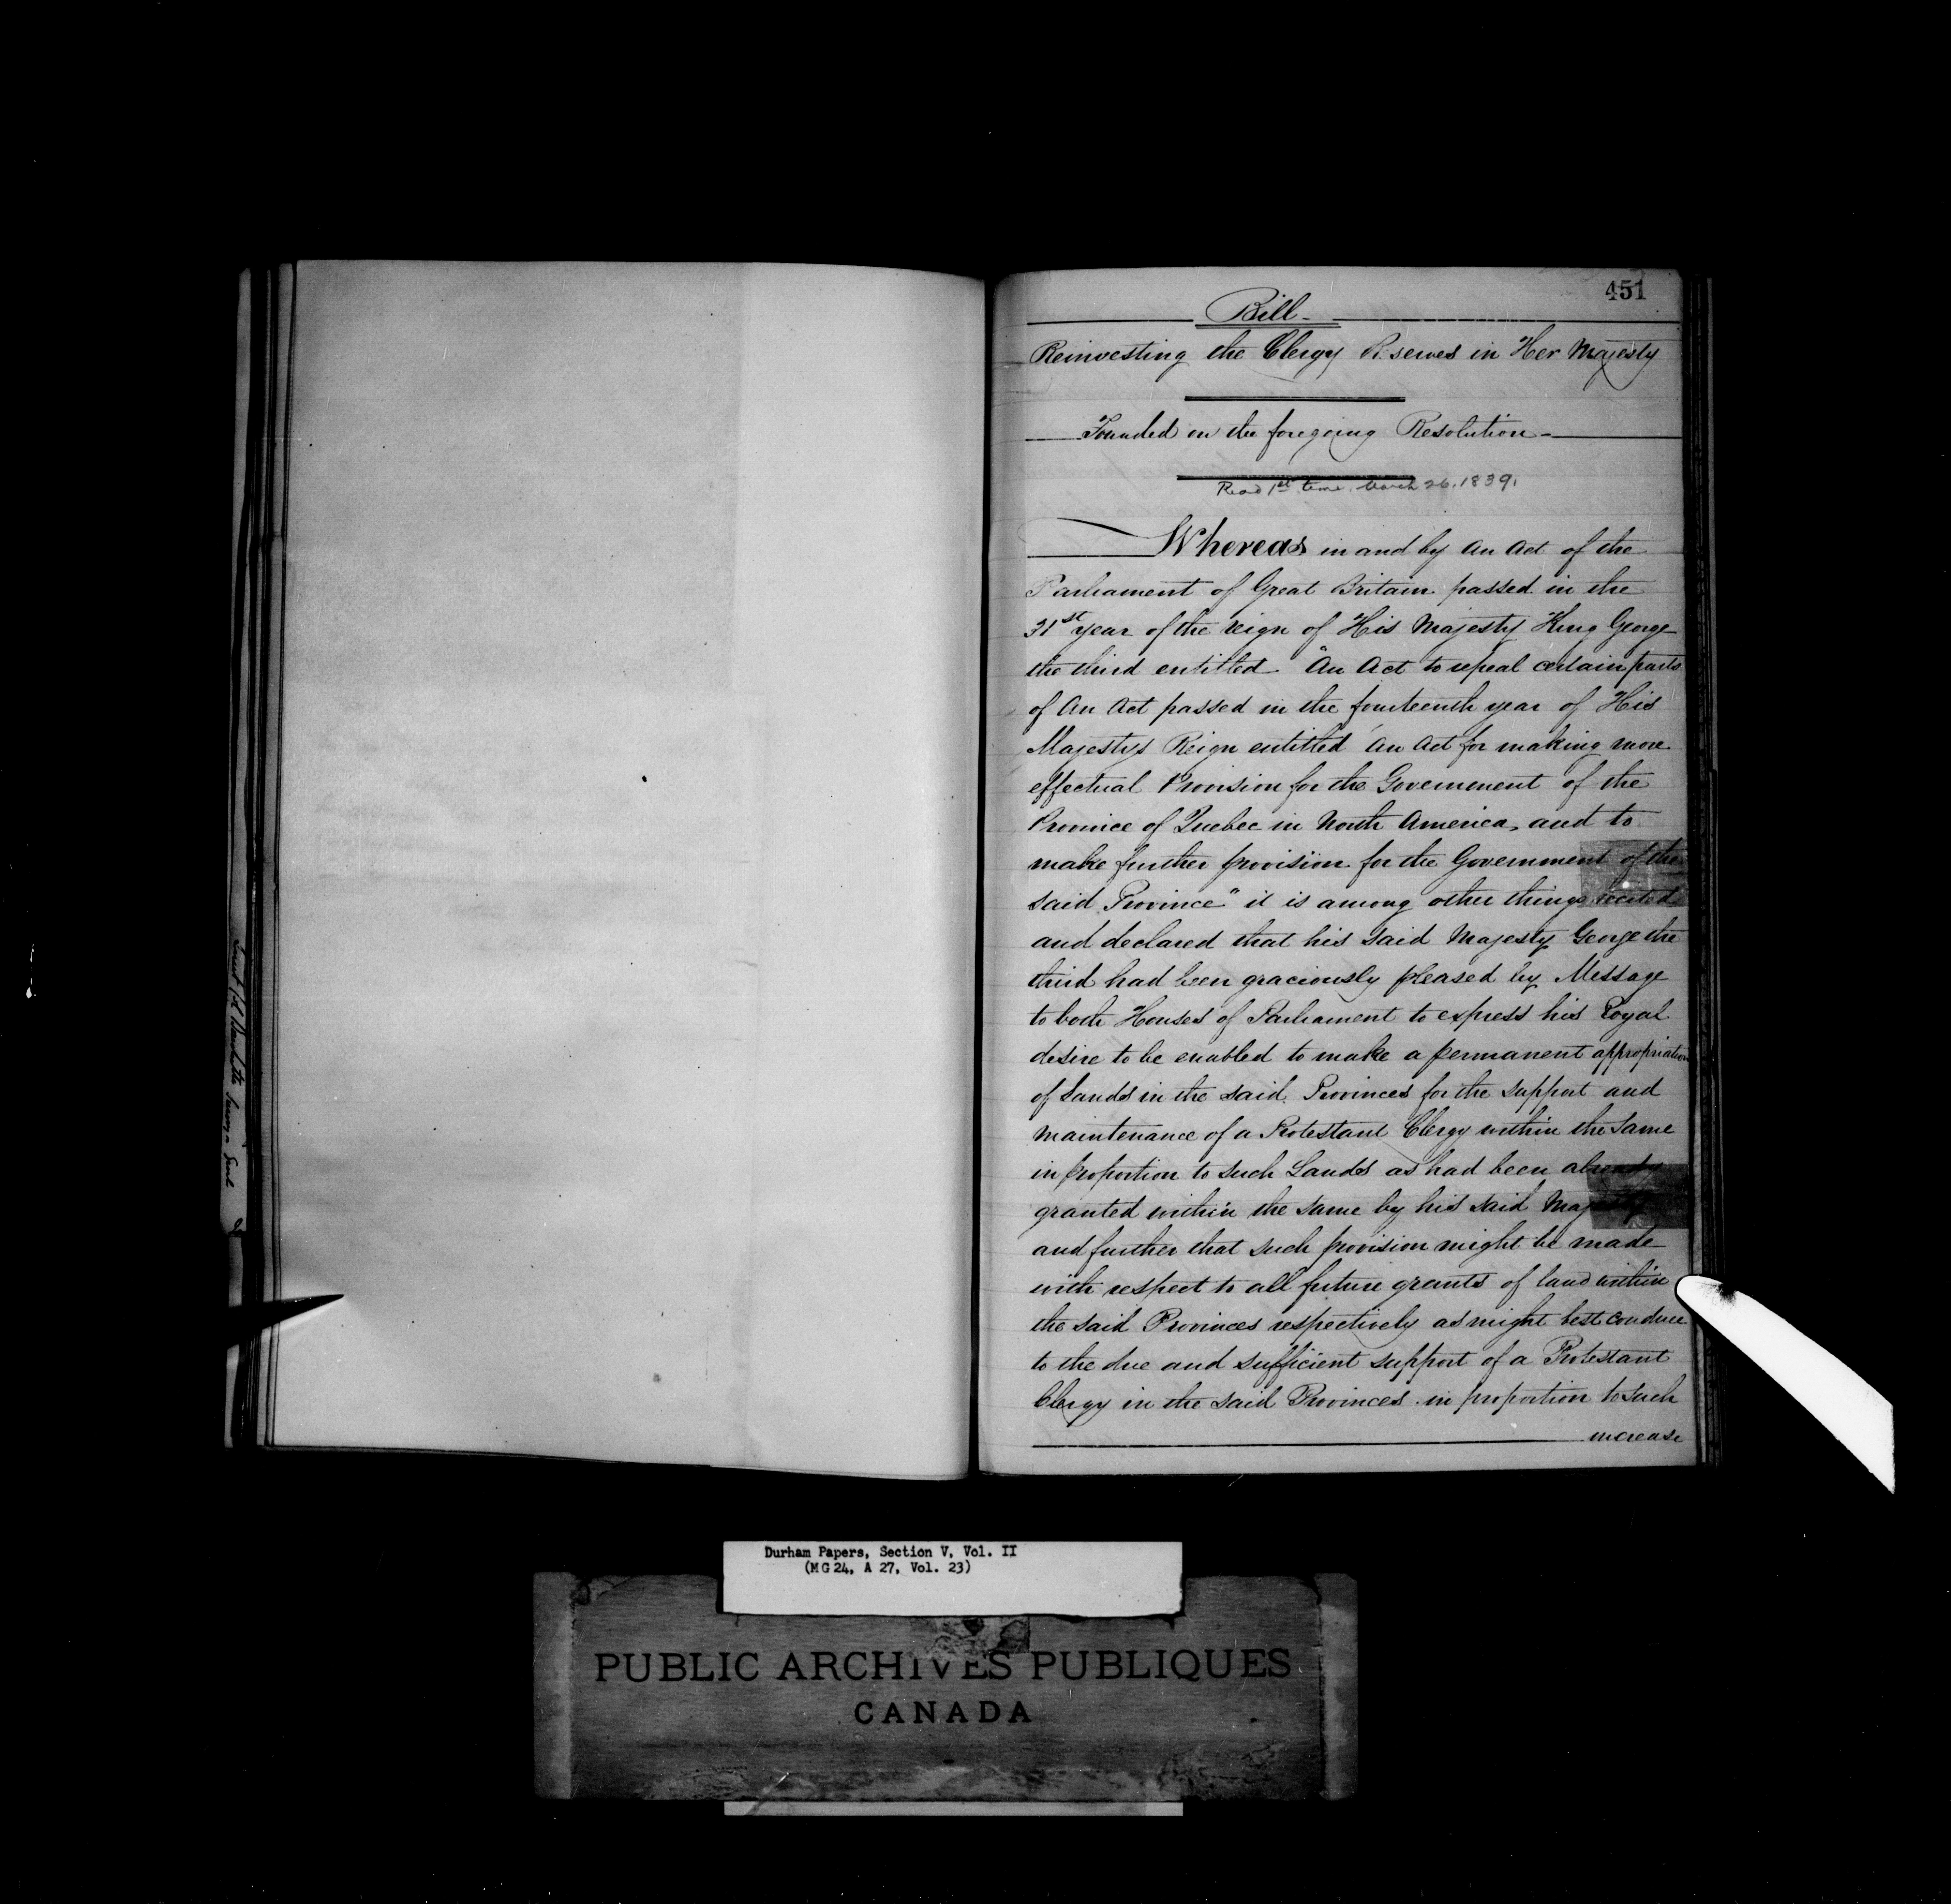 451
Bill -
Reinvesting the Clergy Reserves in Her Majesty
Founded on the foregoing Resolution -
Read 1st time. March 26. 1839.
Whereas in and by An Act of the
Parliament of Great Britain passed in the
31st year of the reign of His Majesty King George
the third entitled "An Act to repeal certain parts
of An Act passed in the fourteenth year of His
Majestys Reign entitled 'An Act for making more
effectual Provision for the Government of the
Province of Quebec in North America, and to
make further provision for the Government of the
said Province" it is among other things recited
and declared that his said Majesty George the
third had been graciously pleased by Message
to both Houses of Parliament to express his Royal
desire to be enabled to make a permanent appropriation
of Lands in the said Provinces for the support and
maintenance of a Protestant Clergy within the same
in proportion to such Lands as had been already
granted within the same by his said Majesty
and further that such provision might be made
with respect to all future grants of land within
the said Provinces respectively as might best conduce
to the due and sufficient support of a Protestant
Clergy in the said Provinces in proportion to such
increase
Durham Papers, Section V, Vol. II
(MG 24, A 27, Vol. 23)
PUBLIC ARCHIVES PUBLIQUES
CANADA